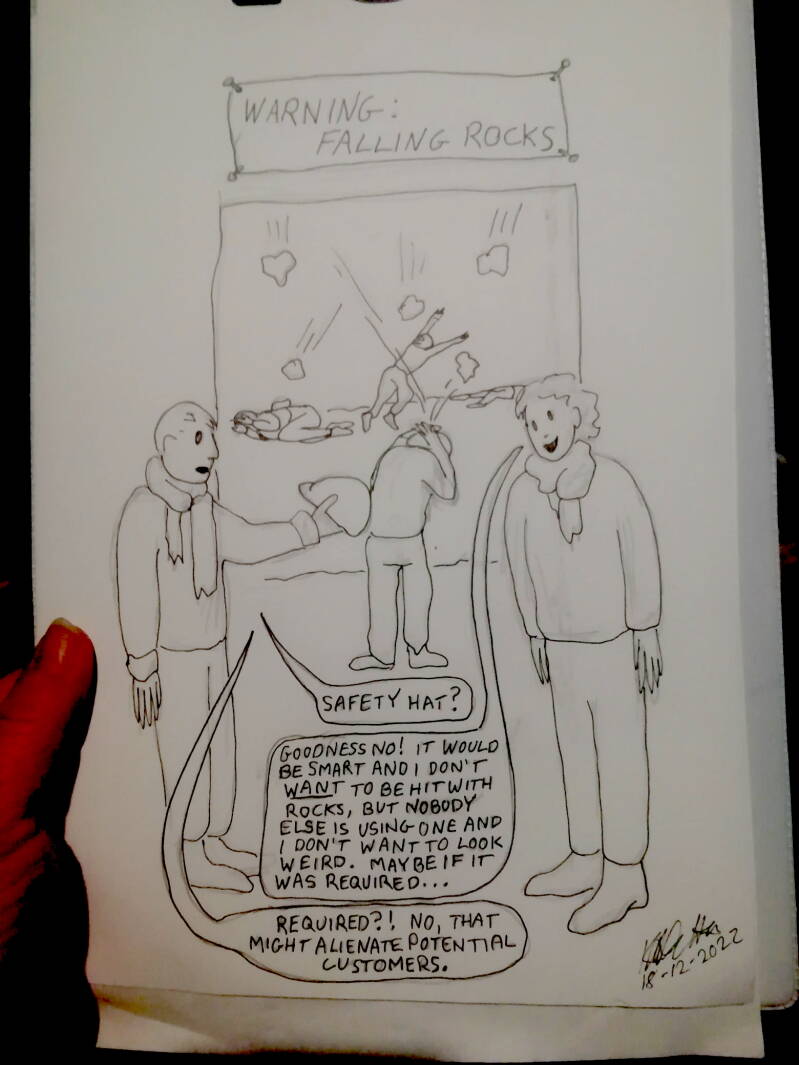 WARNING:
FALLING ROCKS
SAFETY HAT?
GOODNESS NO! IT WOULD
BE SMART AND I DON'T
WANT TO BE HIT WITH
ROCKS, BUT NOBODY
ELSE IS USING ONE AND
I DON'T WANT TO LOOK
WEIRD. MAYBE IF IT
WAS REQUIRED...
REQUIRED?! NO, THAT
MIGHT ALIENATE POTENTIAL
CUSTOMERS.
18-12-2022